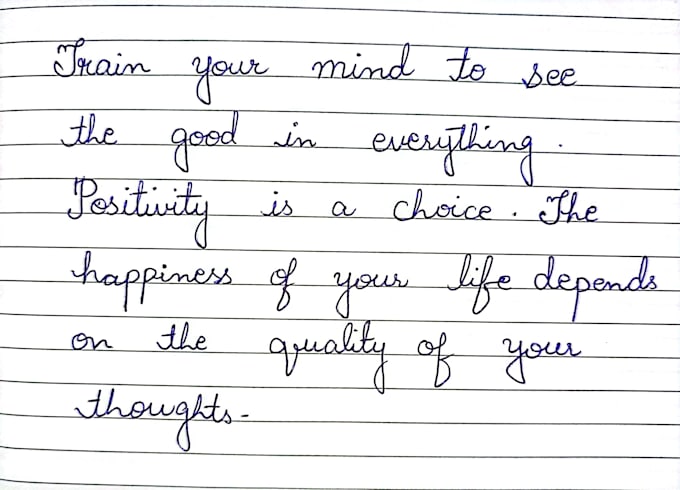 Train your mind to see
the good in everything.
Positivity is a choice. The
happiness of your life depends
on the quality of your
thoughts-